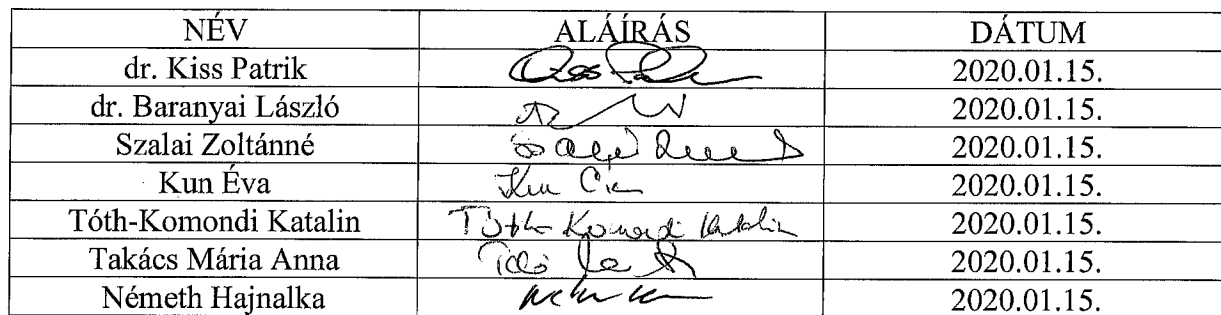 NÉV ALÁÍRÁS DÁTUM
dr. Kiss Patrik 2020.01.15.
dr. Baranyai László 2020.01.15.
Szalai Zoltánné 2020.01.15.
Kun Éva 2020.01.15.
Tóth-Komondi Katalin Tóth-Komondi Katalin 2020.01.15.
Takács Mária Anna 2020.01.15.
Németh Hajnalka 2020.01.15.